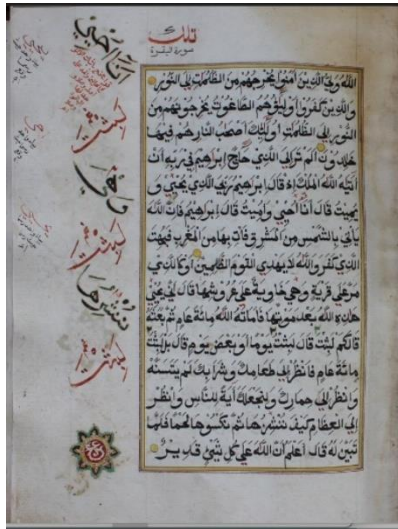 تلك
سورة البقرة
الله ولي الذين آمنوا يخرجهم من الظلمات إلى النور
والذين كفروا أوليؤهم الطاغوت يخرجونهم من
النور إلى الظلمات أولئك أصحب النار هم فيها
خلدون ألم تر إلى الذي حاج إبراهيم في ربه أن
آتيه الله الملك إذ قال إبراهيم ربي الذي يحيي و
يميت قال أنا أحيي وأميت قال إبراهيم فإن الله
يأتي بالشمس من المشرق فأت بها من المغرب فبهت
الذي كفر والله لا يهدي القوم الظلمين أو كالذي
مر على قرية وهي خاوية على عروشها قال أنى يحيي
هذه الله بعد موتها فأماته الله مائة عام ثم بعثه
قال كم لبثت قال لبثت يوما أو بعض يوم قال بل لبثت
مائة عام فانظر إلى طعامك وشرابك لم يتسنه
وانظر إلى حمارك ولنجعلك آية للناس وانظر
إلى العظام كيف ننشزها ثم نكسوها لحما فلما
تبين له قال أعلم أن الله على كل شيء قدير
أنا أحيي
لبثت
وهي
لبثت
ننشزها
لبثت